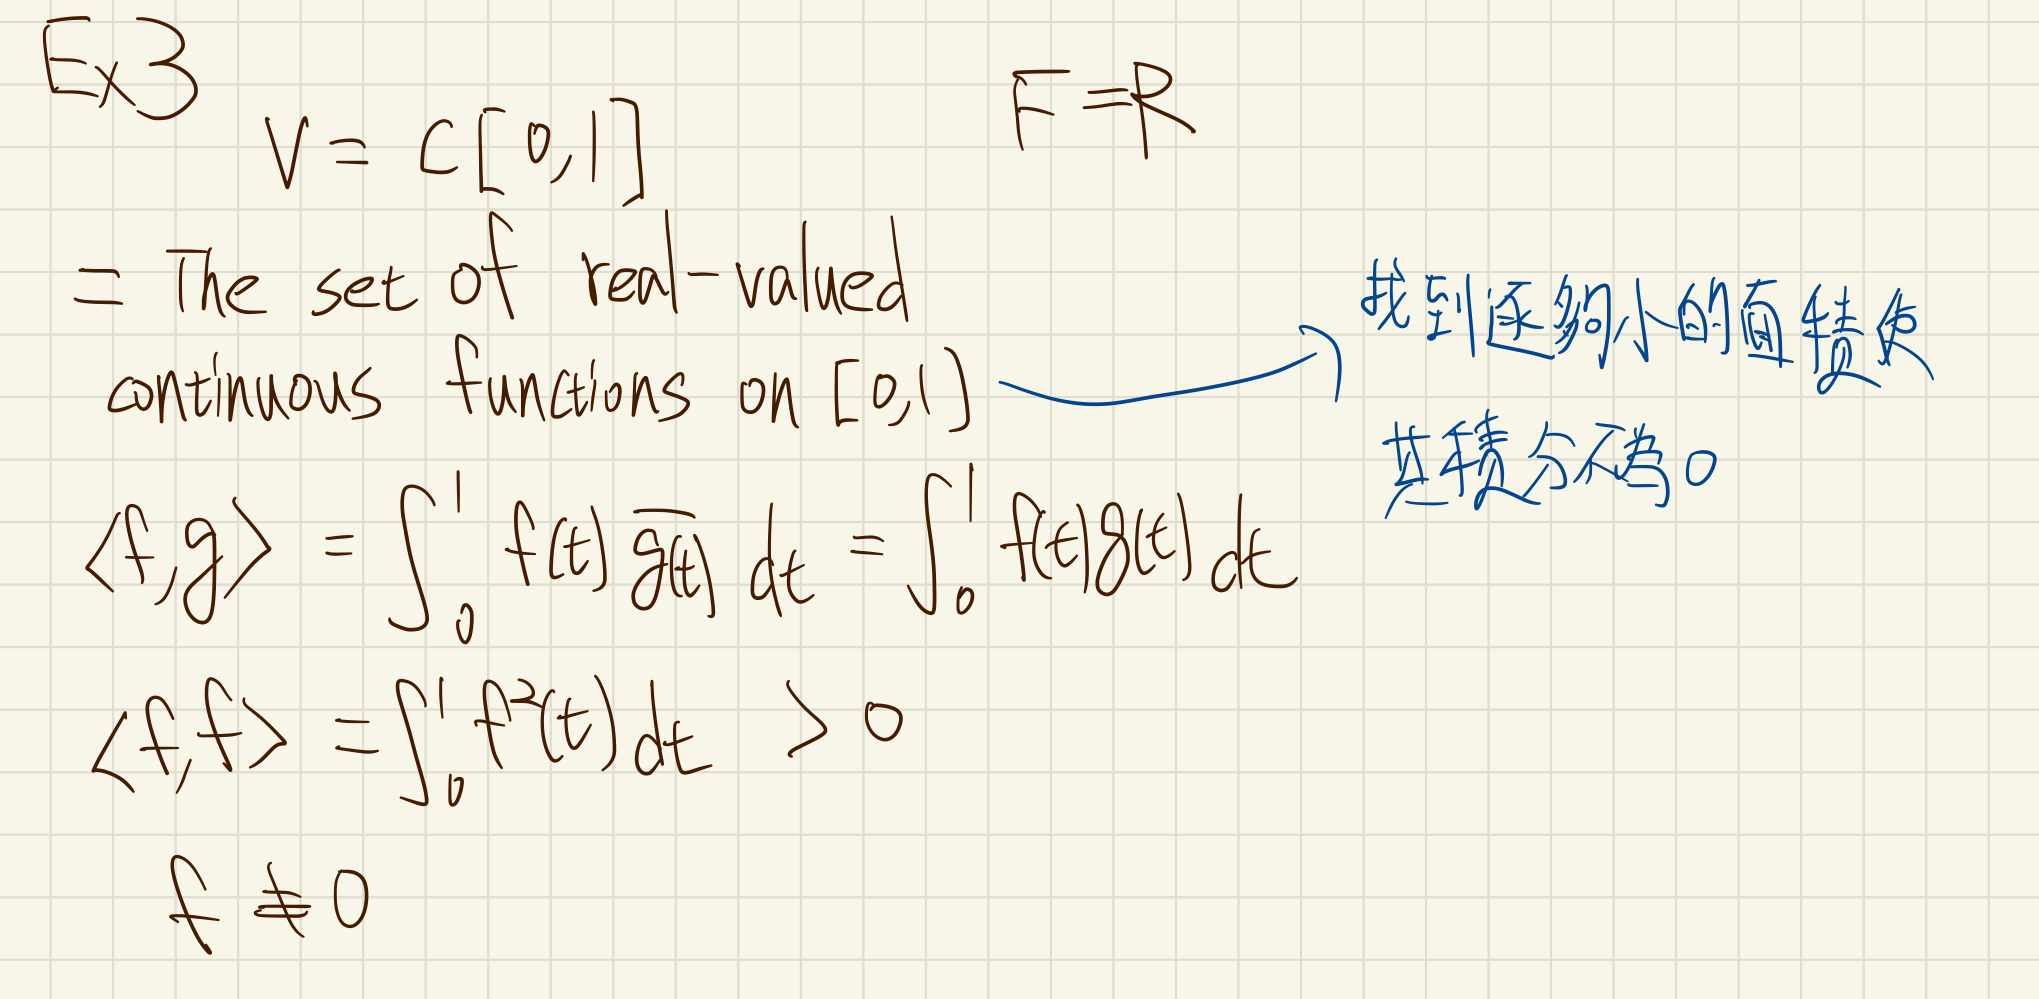 Ex3
V = C[0,1]
F = R
= The set of real-valued
continuous functions on [0,1]
找到足夠小的面積使
其積分不為0
<f,g> = ∫₀¹ f(t) \overline{g(t)} dt = ∫₀¹ f(t)g(t) dt
<f,f> = ∫₀¹ f²(t) dt > 0
f ≠ 0